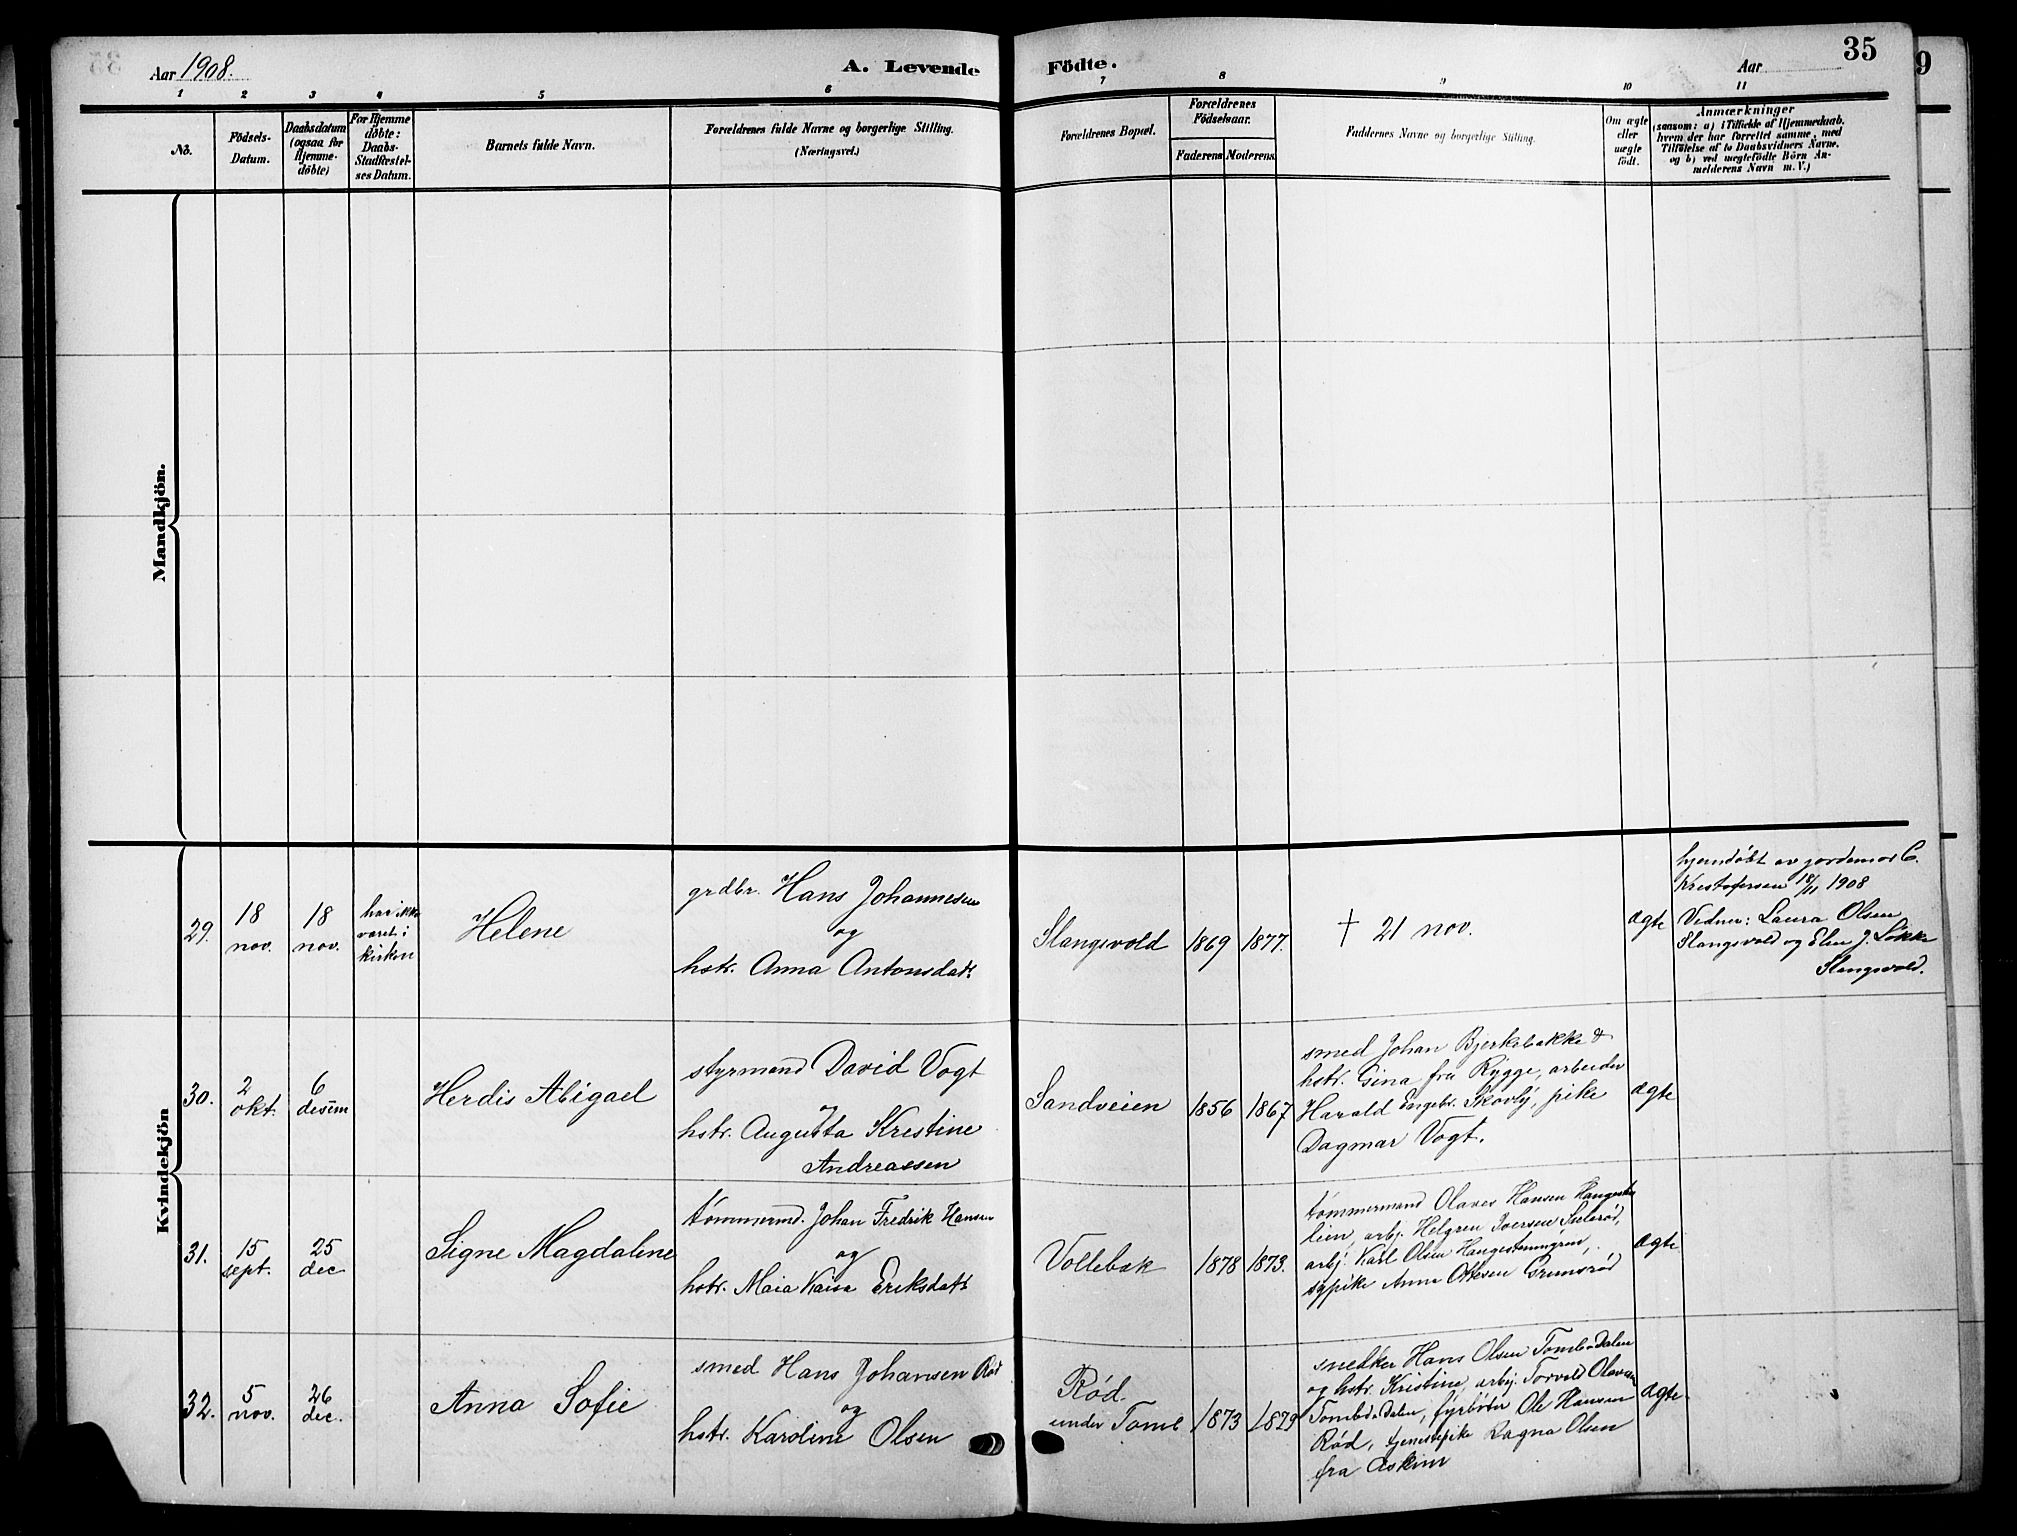 Aar 1908.
A. Levende Födte.
Aar
35
1 2 3 4 5 6 7 8 9 10 11
No.
Födsels-
Datum.
Daabsdatum
(ogsaa for
Hjemme-
døbte)
For Hjemme
døbte:
Daabs-
Stadfæstel-
ses Datum.
Barnets fulde Navn.
Forældrenes fulde Navne og borgerlige Stilling.
(Næringsvei.)
Forældrenes Bopæl.
Forældrenes
Födselsaar.
Faderens Moderens
Faddernes Navne og borgerlige Stilling.
Om ægte
eller
uægte
født.
Anmærkninger
(saasom: a) i Tilfælde af Hjemmedaab.
hvem der har forrettet samme, med
Tilføielse af to Daabsvidners Navne.
og b) ved uægtefödte Börn An-
melderens Navn m.V.)
Mandkjön.
Kvindekjön
29.
18
nov.
18
nov.
har ikke
været i
kirken
Helene
grdbr. Hans Johannesen
og
hstr. Anna Antonsdatr
Slangsvold
1869
1877.
† 21 nov.
ægte
hjemdøbt av jordemor C.
Kristofersen 18/11 1908
Vidner: Laura Olsen
Slangsvold og Elen J. Løkke
Slangsvold.
30.
2
okt.
6
desem
Herdis Abigael
styrmand David Vogt
og
hstr. Augusta Kristine
Andreassen
Sandveien
1856
1867
smed Johan Bjerkebakke &
hstr. Gina fra Rygge, arbeider
Harald Engebr. Skovly, pike
Dagmar Vogt.
ægte
31.
15
sept.
25
dec
Signe Magdalene
tømmermd. Johan Fredrik Hansen
og
hstr. Maia Kaisa Eriksdatr
Vollebæk
1878
1873.
tømmermand Olaves Hansen
lien, arbj. Helgren Iversen
arbj. Karl Olsen
sypike Anna Ottesen Grimsrød
ægte
32.
5
nov.
26
dec.
Anna Sofie
smed Hans Johansen Rød
og
hstr. Karoline Olsen
Rød
under Tomb
1873
1879
snedker Hans Olsen Tombsdalen
og hstr. Kristine, arbj. Torvald Olavsen
Tombsdalen, fyrbøter Ole Hansen
Rød, tjenestepike Ragna Olsen
fra Askim
ægte